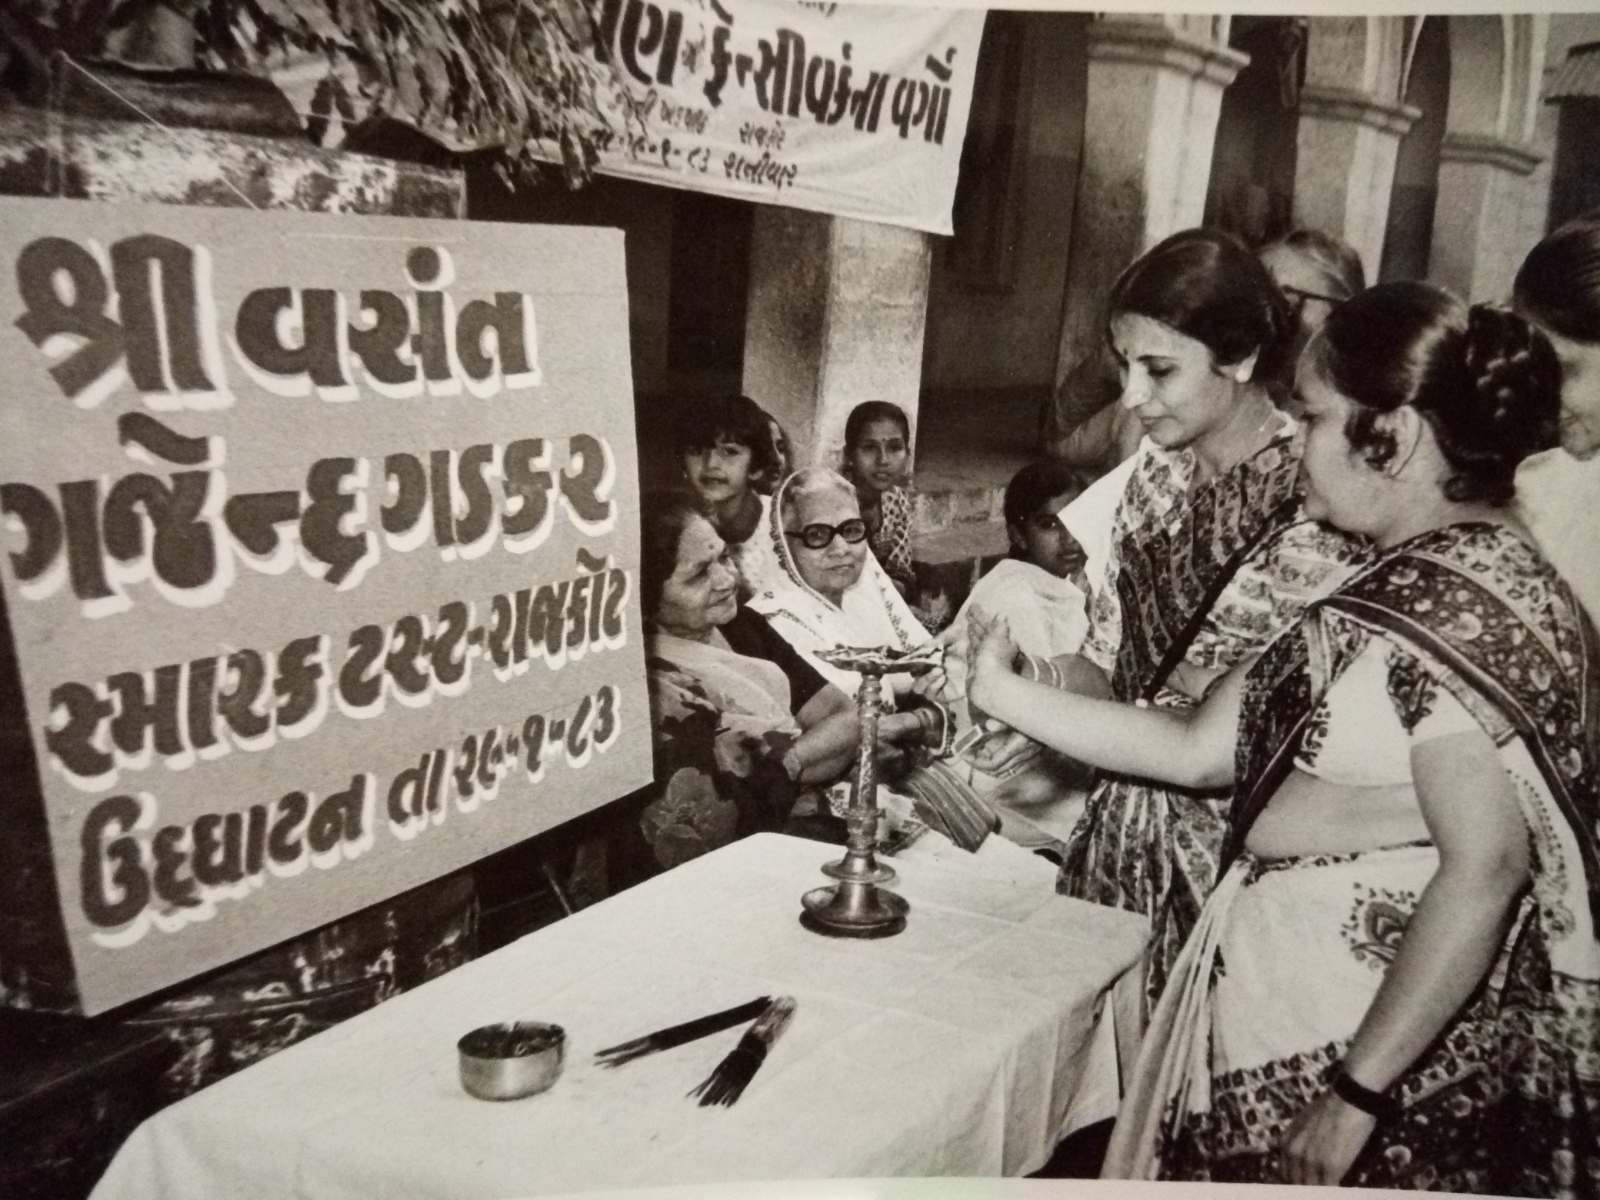 ણ અને ફેન્સીવર્કના વર્ગો
રાજકોટ
તા. ૨૯-૧-૮૩ શનીવાર
શ્રી વસંત
ગજેન્દ્ર ગડકર
સ્મારક ટ્રસ્ટ-રાજકોટ
ઉદ્ઘાટન તા ૨૯-૧-૮૩